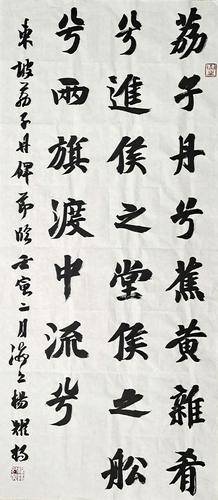 荔子丹兮蕉黃雜肴
兮進侯之堂侯之舩
兮兩旗渡中流兮
東坡荔子丹碑節臨壬寅二月海上楊耀